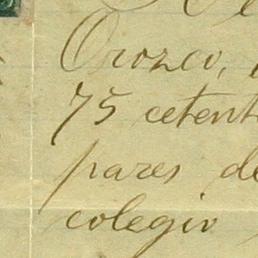 Orozco,
75 cetent
pares de
colegio